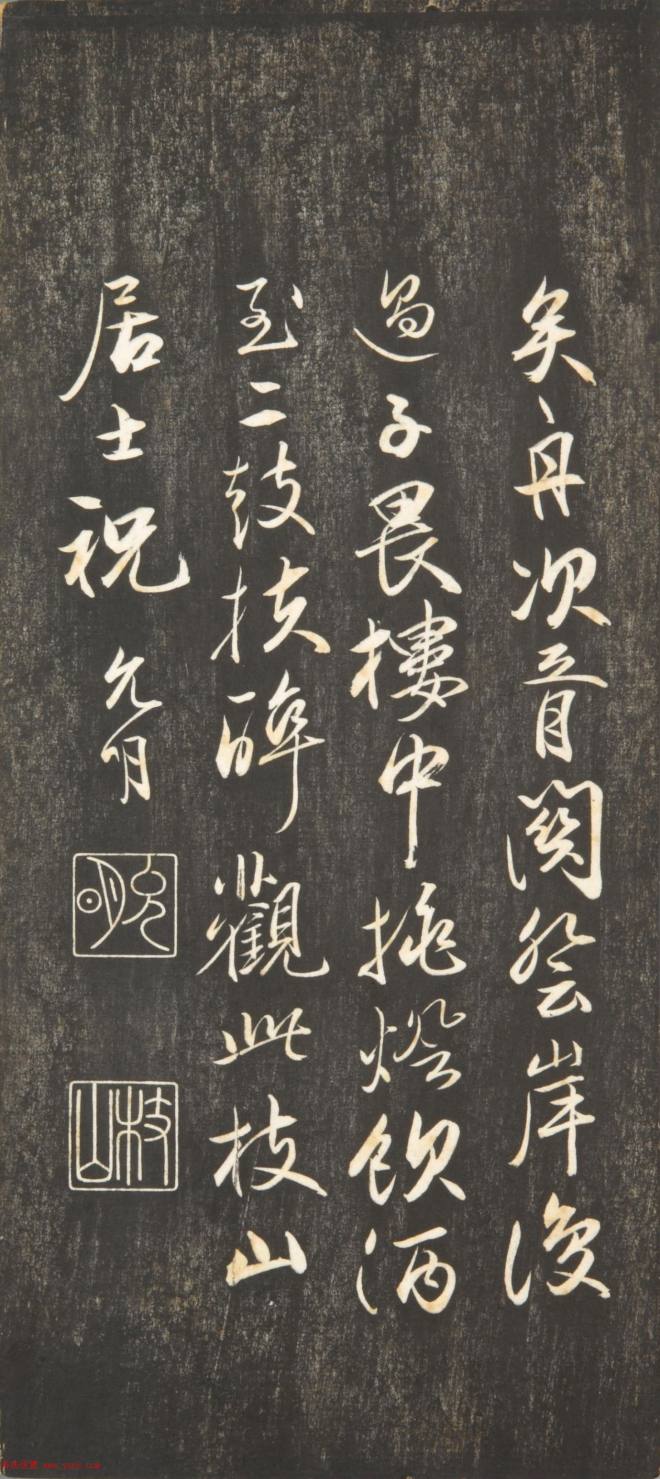 矣舟次胥関登岸後
過子畏樓中挑燈飲酒
至二鼓扶醉觀此枝山
居士祝允明
允明
枝山